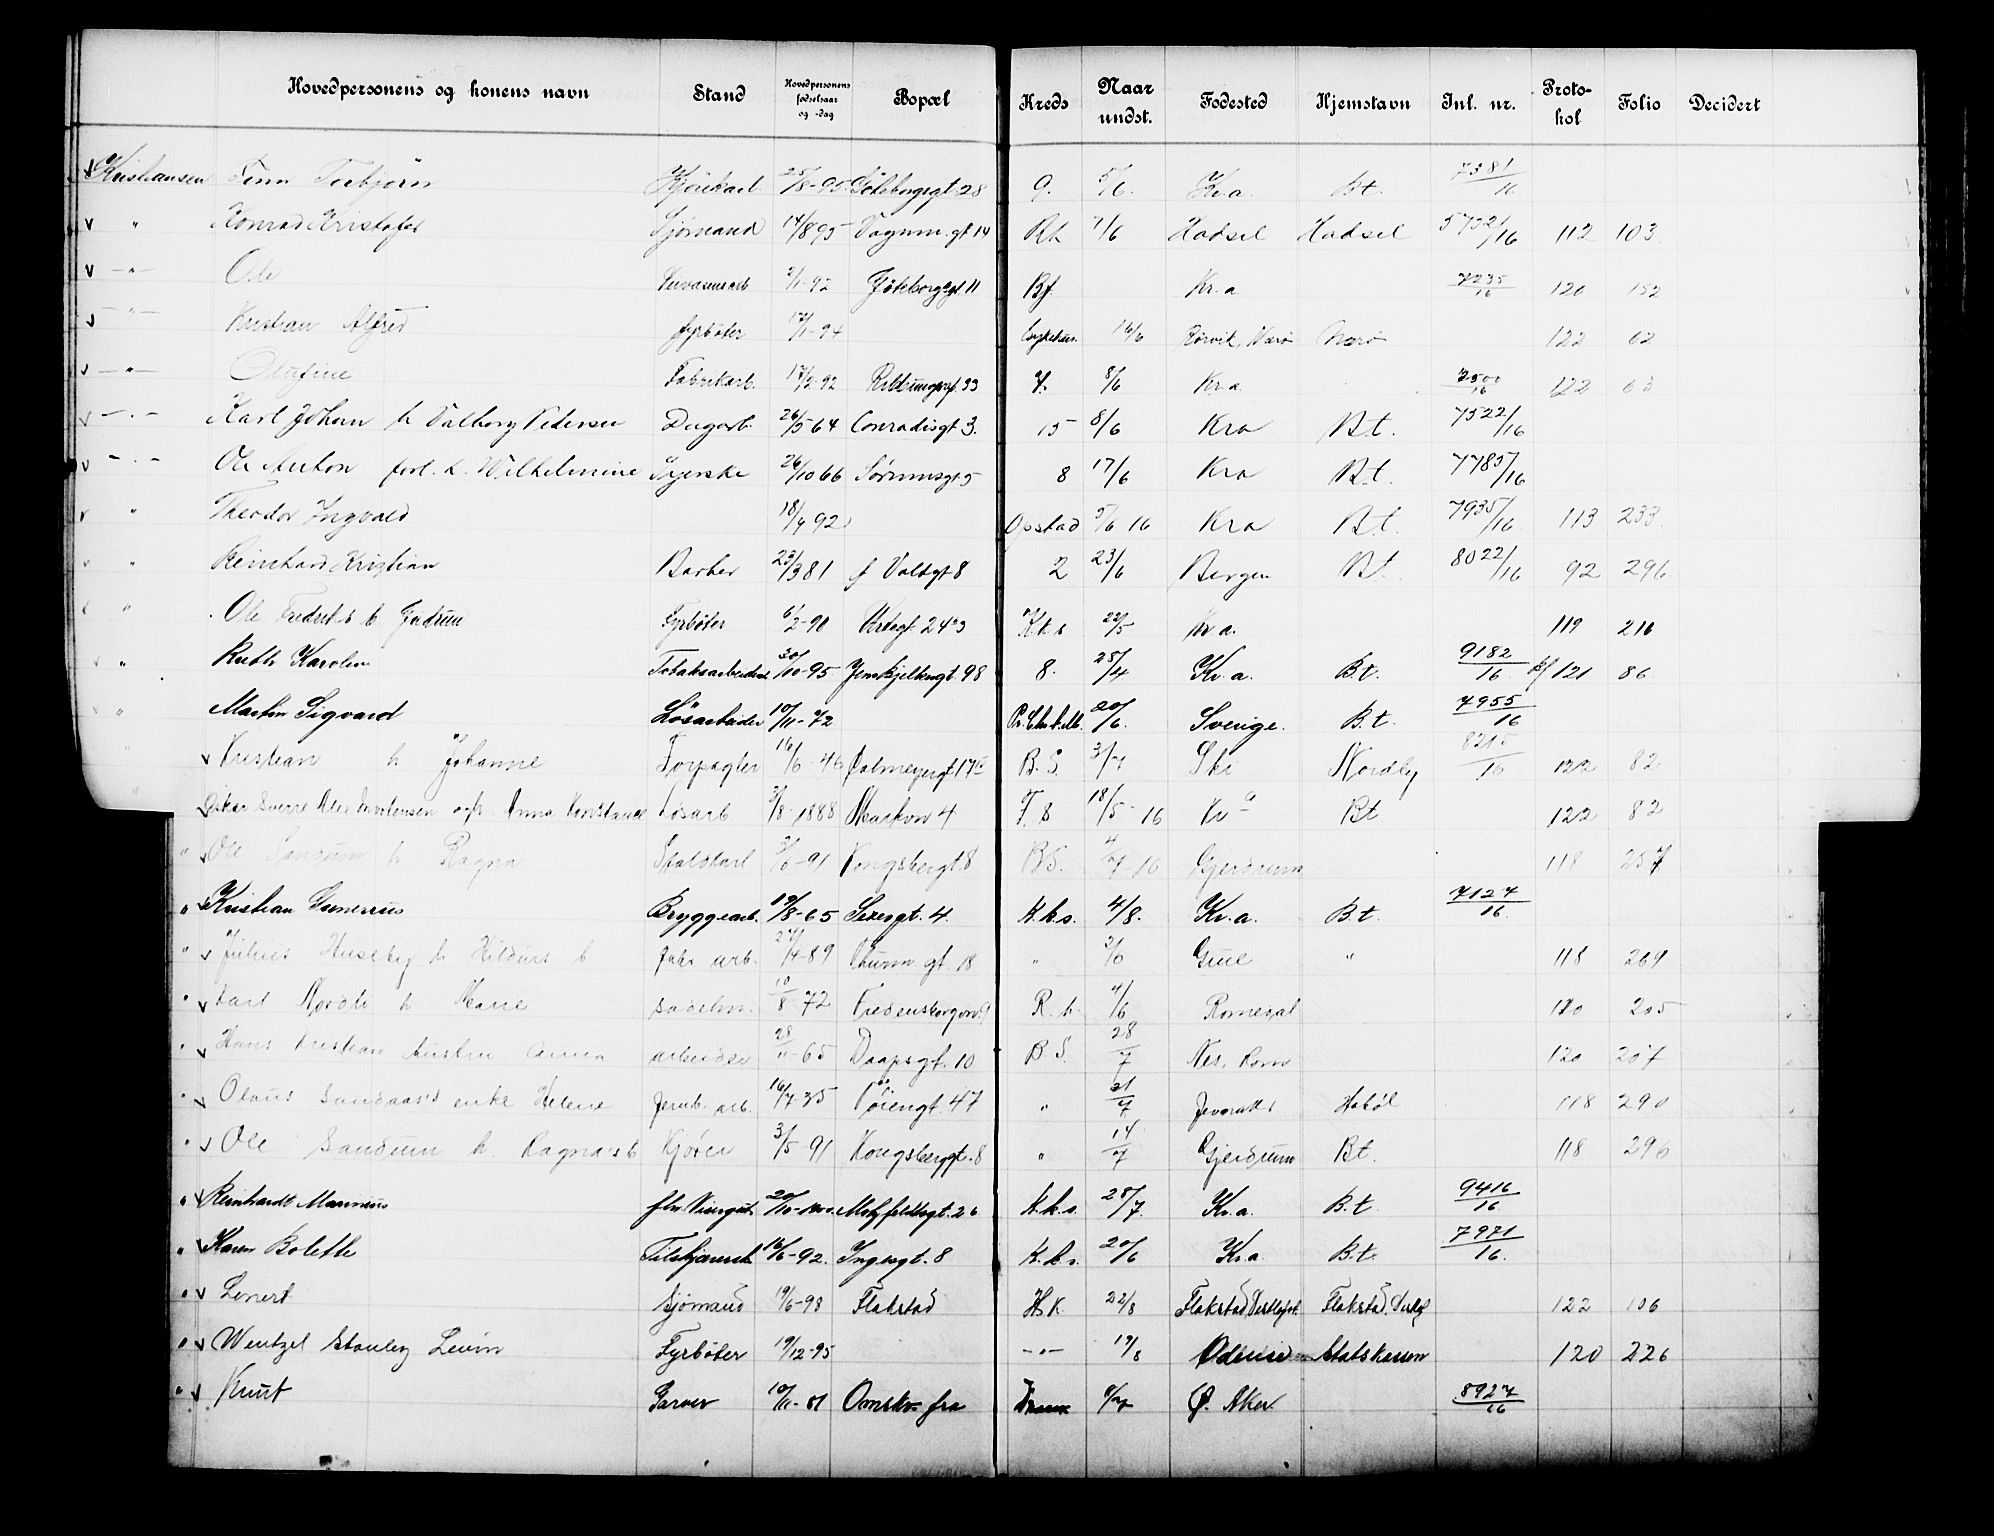 Hovedpersonens og konens navn Stand Hovedpersonens fødselsaar og -dag Bopæl Kreds Naar undst. Fødested Hjemstavn Inl. nr. Protokol Folio Decidert
Kristiansen Finn Torbjörn 25/8-95 Göteborggt 28 9. 5/6. Kr.a. Bt. 7381/16
" Konrad Kristofer Sjømand 14/8 95 Vognm.gt 14 Rh 7/6 Hadsel Hadsel 5732/16 112 103
-"- Ole 2/1-92 Göteborggt. 11 Kr.a. 7235/16 120 152
-"- Kristian Alfred Fyrböter 17/1-94 Sykehus. 16/6 Rørvik, Nærø Nærø 122 62
-"- Olufine Fabrikarb. 17/2-92 8/6 Kr.a. 7500/16 122 63
-"- Karl Johan h Valborg Pedersen Dagarb. 26/5 64 Conradisgt 3. 15 8/6 Kra Bt. 7522/16
-"- Ole Anton forl. h. Wilhelmine Syerske 26/10 66 Sørumsgt 5 8 17/6 Kra Bt. 7785/16
" Theodor Ingvald 18/4 92 Opstad 5/6 16 Kra Bt. 7935/16 113 233
" Reinhard Kristian Barber 23/3 81 2 23/6 Bergen Bt. 8022/16 92 296
" Ole Fredrik's b Gudrun Fyrböter 6/2-90 K.k.s 22/5 Kr.a. 119 216
" Ruth Karoline Tobaksarbeiderske 30/10-95 Jens Bjelkesgt. 98 8. 25/4 Kr.a. Bt. 9182/16 121 86
" Martin Sigvard Lösarbeider 10/11-72 20/6. Sverige. B.t. 7955/16
Kristian h Johanne 16/6-46 Dalmeyergt 17 B.S. 3/7 Ski Nordby 8215/16 122 82
Oskar Sverre Alex Mortensen Anna Konstance Løsarb. 3/8-1888 Markvn 4 F.S 18/5-16 Kra Bt 122 82
" Ole Sandum h Ragna Stalskarl 3/5-91 Kongsberggt 8 B.S. 4/7-16 Gjerdrum 118 257
" Kristian Gunerius Bryggearb. 19/8-65 K.k.s. 4/8. Kr.a. B.t. 7127/16
" Julius Huseby h Hildurs b Fabr arb. 27/4-89 Thurm. gt. 18 " 3/6 Grue " 118 269
" Karl Nordli h Marie sadelm. 10/8-72 Fredensborgvn. 9 R.h. 4/6 Romedal 120 205
" Hans Kristian Austin Anna arbeider 28/11-65 Daapsgt. 10 B.S. 28/7 Nes, Rom 120 207
" Olaus Sandaas's enke Helene Jernb. arb. 16/7 35 Töiengt. 47 " 21/7 Jevnaker Hobøl 118 290
" Ole Sandum h. Ragna's b Kjører 3/5-91 Kongsberggt. 8 " 14/7 Gjerdrum Bt. 118 296
" Reinhardt Marinius K.k.s. 25/7. Kr.a. B.t. 9416/16
" Karen Bolette 16/6-92. Ingesgt. 8 K.k.s. 20/6 Kr.a. B.t. 7971/16
" Lenert Sjömand 19/6-98 Flakstad H.K. 22/8 Flakstad, Vestlofot. Flakstad, 122 106
" Wentzel Stanley Levin Fyrböter 19/12-95 -"- 19/8 Odense Statskassen 120 226
" Knut Garver 10/11-81 Omskr. fra Ø. Aker 8927/16